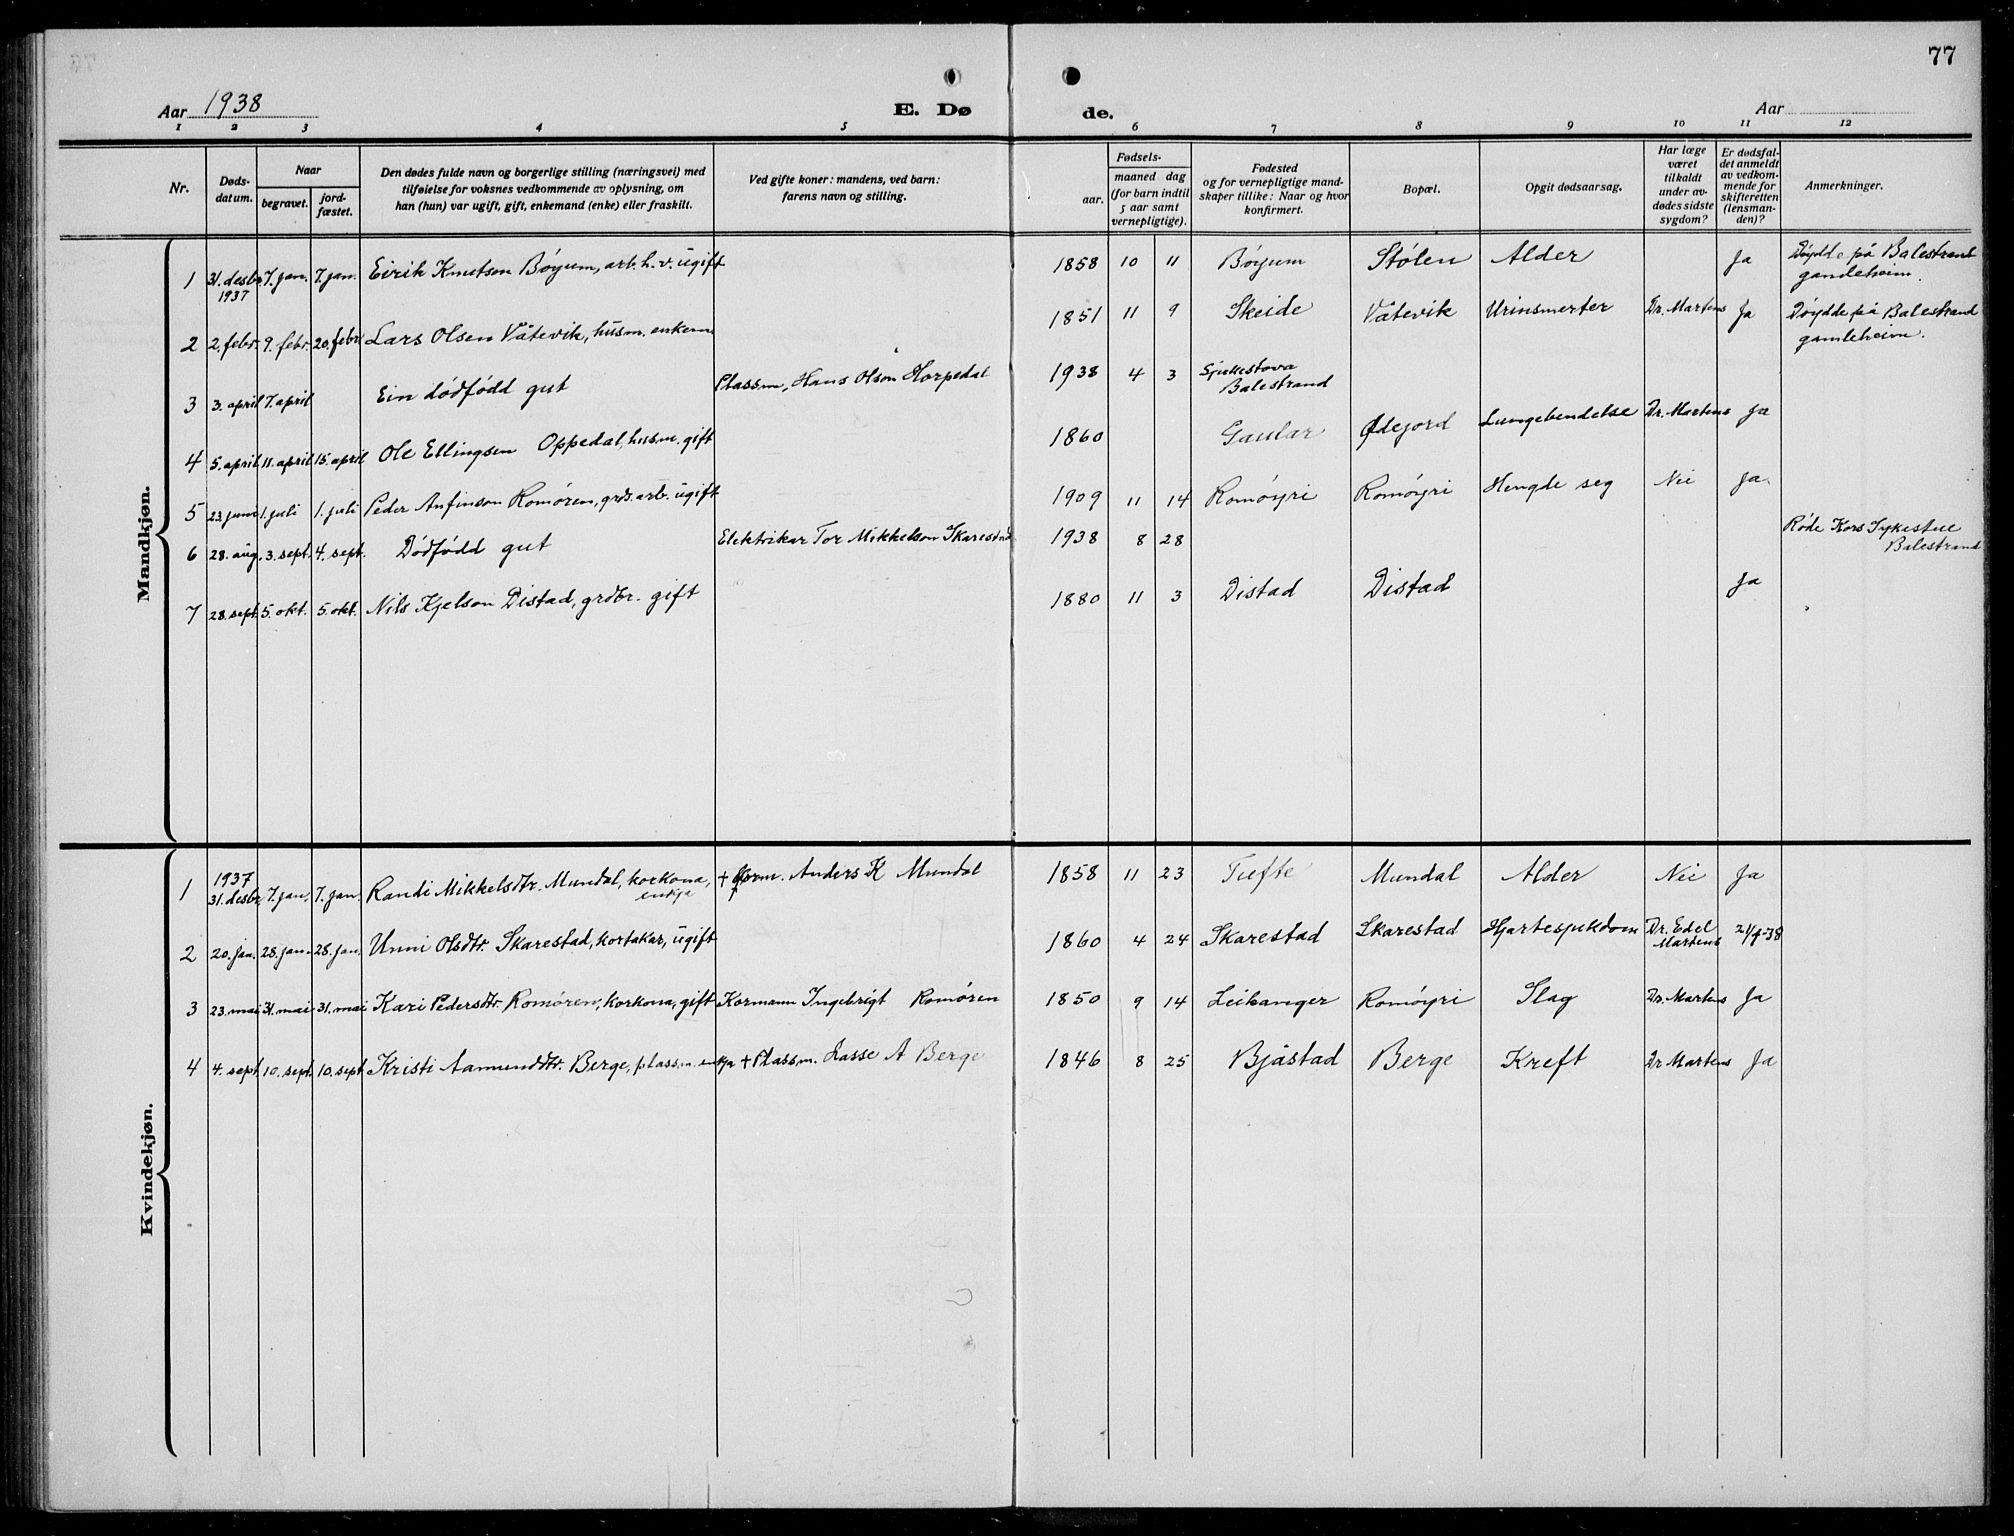 77
Aar 1938
E. Dø
de.
Aar
1 2 3 4 5 6 7 8 9 10 11 12
Nr.
Døds-
datum.
Naar
begravet.
jord-
fæstet.
Den dødes fulde navn og borgerlige stilling (næringsvei) med
tilføielse for voksnes vedkommende av oplysning, om
han (hun) var ugift, gift, enkemand (enke) eller fraskilt.
Ved gifte koner: mandens, ved barn:
farens navn og stilling.
Fødsels-
aar.
maaned dag
(for barn indtil
5 aar samt
vernepligtige).
Fødested
og for vernepligtige mand-
skaper tillike: Naar og hvor
konfirmert.
Bopæl.
Opgit dødsaarsag.
Har læge
været
tilkaldt
under av-
dødes sidste
sygdom?
Er dødsfal-
det anmeldt
av vedkom-
mende for
skifteretten
(lensman-
den)?
Anmerkninger.
Mandkjøn.
1 31. desbr. 1937 7. jan. 7. jan. Eirik Knutson Bøyum, arb. h.v. ugift 1858 10 11 Bøyum Stølen Alder Ja Døydde på Balestrand
gamleheim.
2 2. febr. 9. febr. 20. febr. Lars Olsen Våtevik, husm. enkem 1851 11 9 Skeide Våtevik Urinsmerter Dr. Martens Ja Døydde på Balestrand
gamleheim.
3 3. april 7. april Ein dødfødd gut Plassm, Hans Olson Horpedal 1938 4 3 Sjukestova
Balestrand
4 5. april 11. april 15. april Ole Ellingsen Oppedal, husm. gift 1860 Gaular Ødejord Lungebendelse Dr. Martens Ja
5 23. juni 1. juli 1. juli Peder Anfinson Romøren, grds. arb. ugift 1909 11 14 Romøyri Romøyri Hengde seg Nei Ja.
6 28. aug. 3. sept. 4. sept. Dødfødd gut Elektrikar Tor Mikkelson Skarestad 1938 8 28 Røde Kors Sykestue
Balestrand
7 28. sept. 5. okt. 5. okt. Nils Kjelson Distad, grdbr. gift 1880 11 3 Distad Distad Ja
Kvindekjøn.
1 1937
31. desbr. 7. jan. 7. jan. Randi Mikkelsdtr. Mundal, korkona,
enkja + Korm. Anders K Mundal 1858 11 23 Tufte Mundal Alder Nei Ja
2 20. jan. 28. jan. 28. jan. Unni Olsdtr. Skarestad, kortakar, ugift 1860 4 24 Skarestad Skarestad Hjartesjukdom Dr. Edel
Martens 21/1-38
3 23. mai 31. mai 31. mai Kari Pedersdtr. Romøren, korkona, gift Kormann Ingebrigt Romøren 1850 9 14 Leikanger Romøyri Slag Dr. Martens Ja
4 4. sept 10. sept. 10. sept Kristi Aamunddtr. Berge, plassm. enkja + Plassm. Lasse A Berge 1846 8 25 Bjåstad Berge Kreft Dr Martens Ja